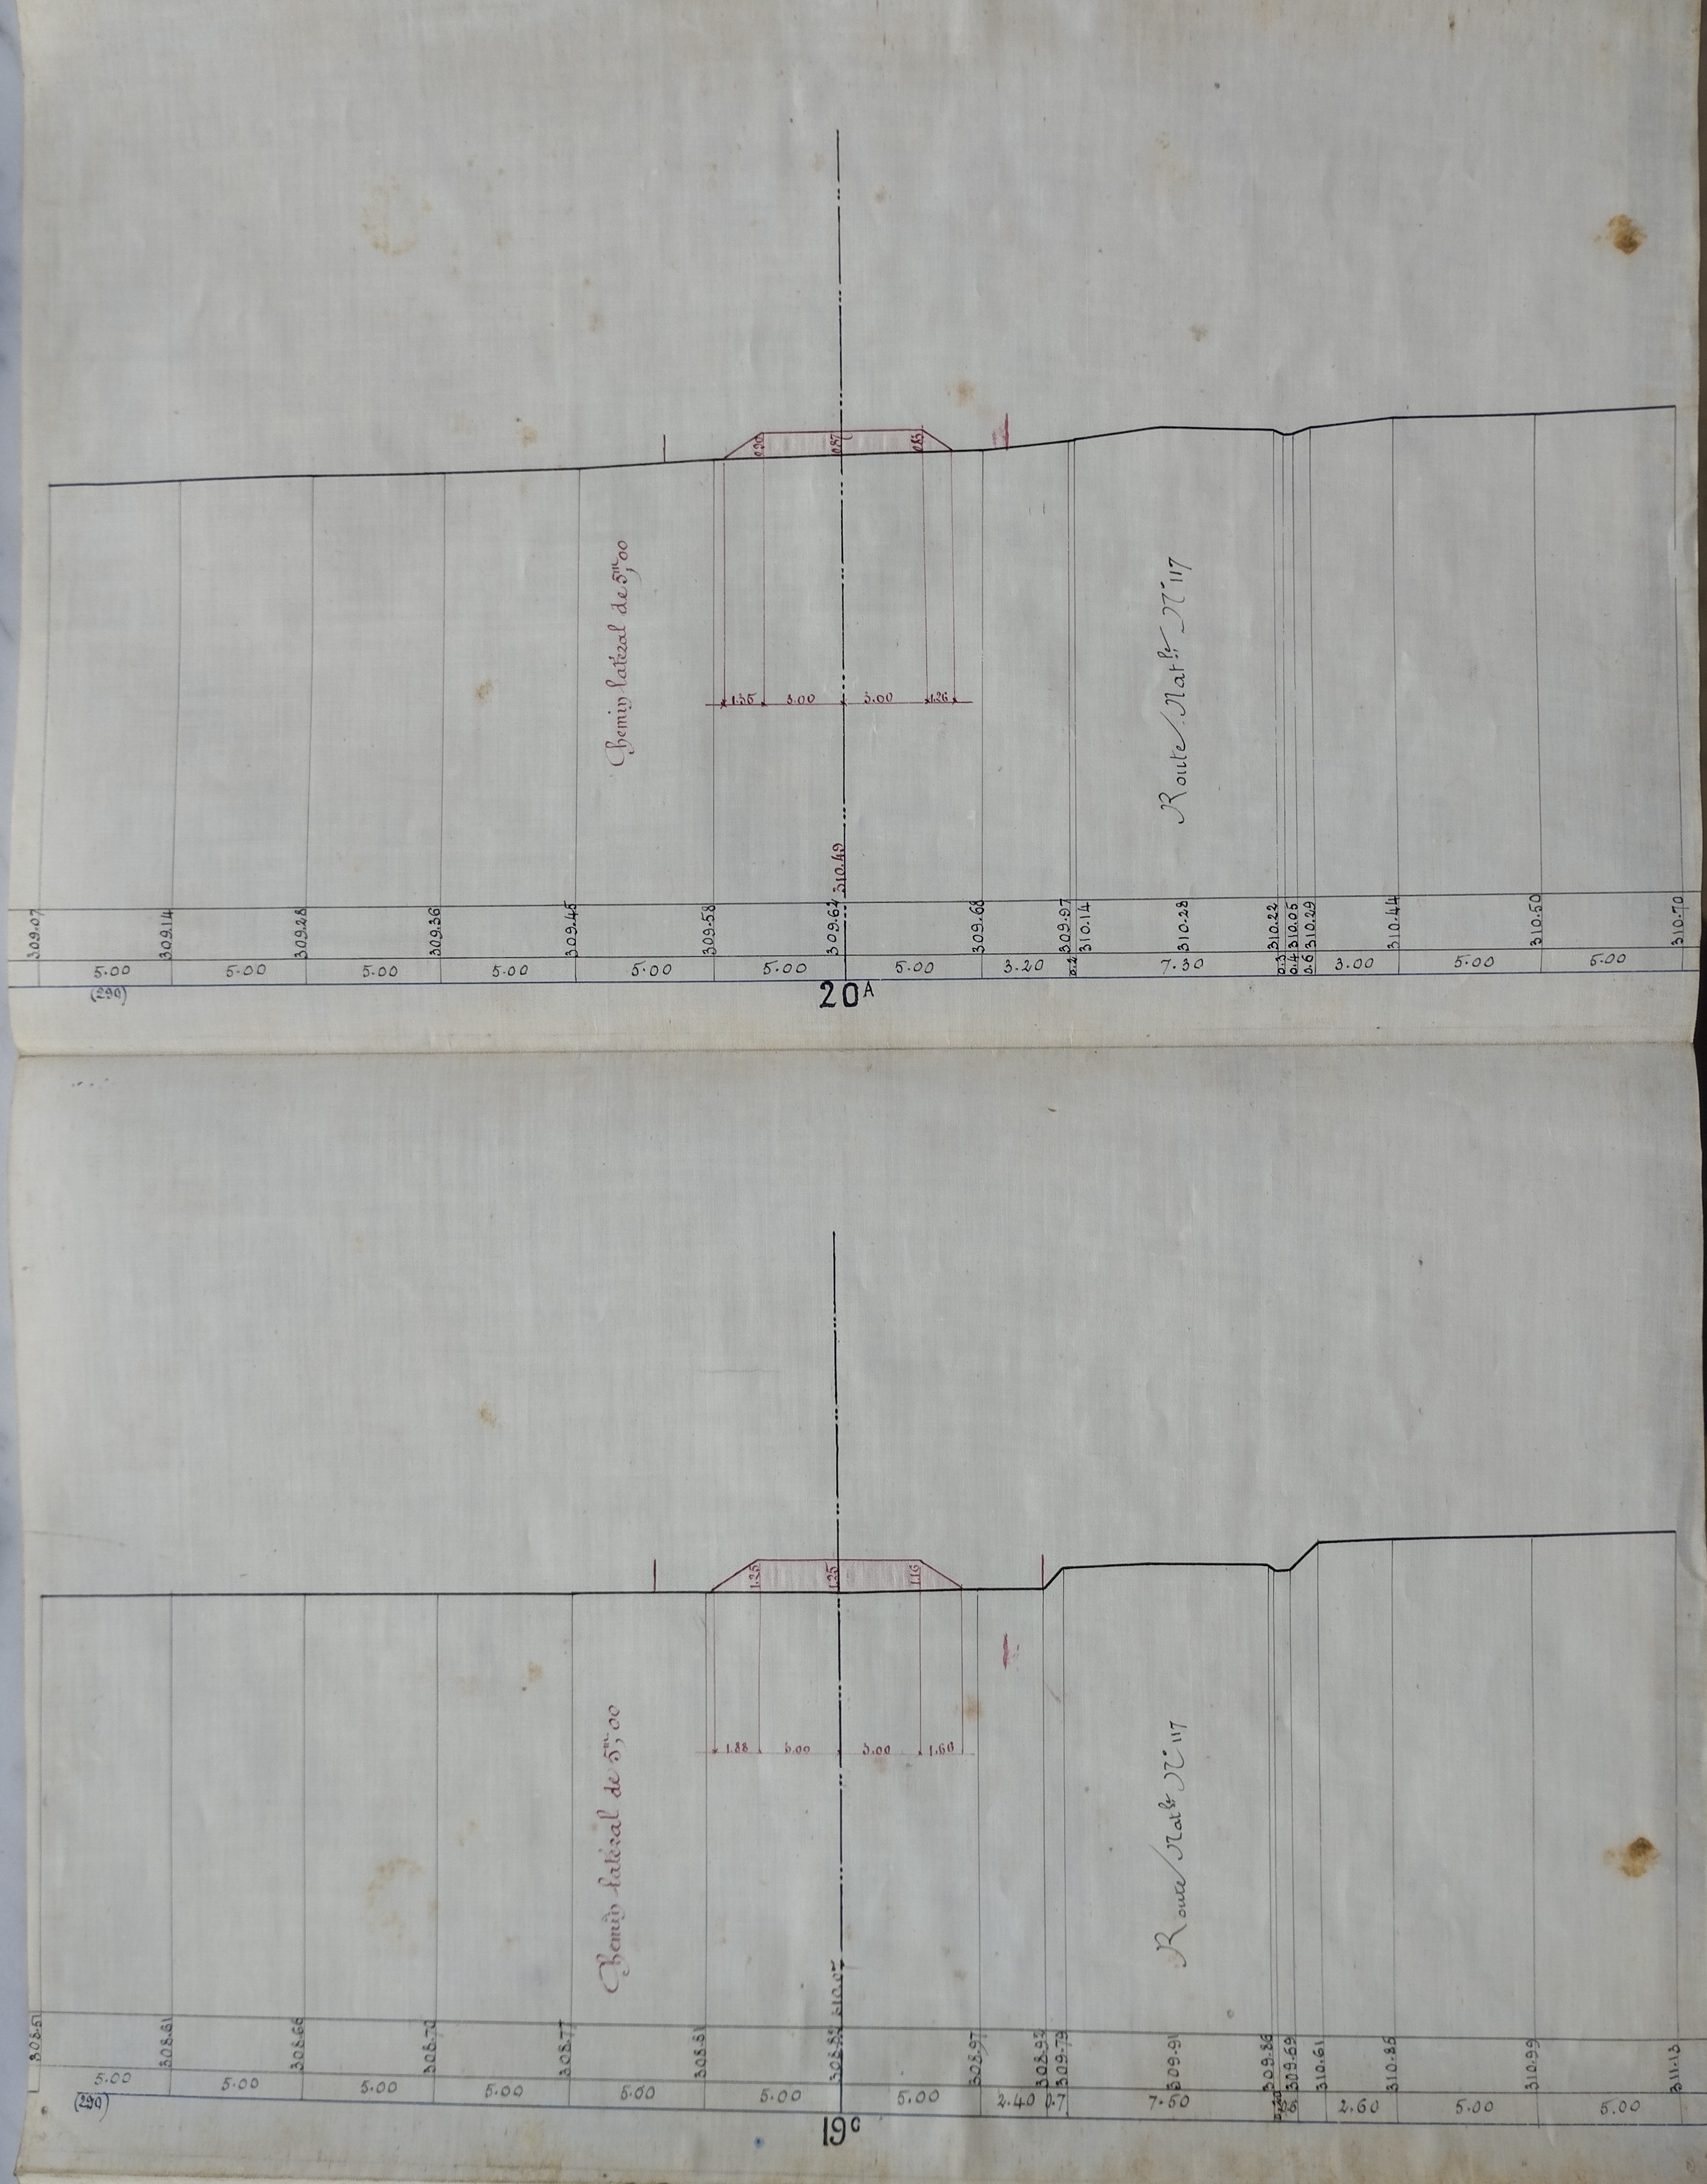 0.90 0.87 0.85
Chemin latéral de 5ᵐ,00
Route Natˡᵉ N° 117
1.35 3.00 3.00 1.26
310.49
309.07 309.14 309.28 309.36 309.45 309.58 309.62 309.68 309.97 310.14 310.28 310.22 310.05 310.29 310.44 310.50 310.70
5.00 5.00 5.00 5.00 5.00 5.00 5.00 3.20 0.2 7.30 0.4 0.6 3.00 5.00 5.00
(290)
20ᴬ
1.25 1.25 1.16
Chemin latéral de 5ᵐ,00
Route Natˡᵉ N° 117
1.88 3.00 3.00 1.60
310.07
308.51 308.61 308.66 308.70 308.77 308.81 308.82 308.97 308.92 309.79 309.91 309.86 309.69 310.61 310.86 310.99 311.13
5.00 5.00 5.00 5.00 5.00 5.00 5.00 2.40 0.7 7.50 2.60 5.00 5.00
(290)
19ᶜ